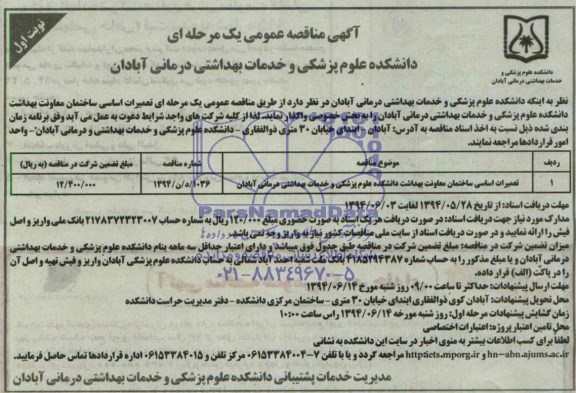 نوبت اول
آگهی مناقصه عمومی یک مرحله ای
دانشکده علوم پزشکی و خدمات بهداشتی درمانی آبادان
دانشکده علوم پزشکی و
خدمات بهداشتی درمانی آبادان
نظر به اینکه دانشکده علوم پزشکی و خدمات بهداشتی درمانی آبادان در نظر دارد از طریق مناقصه عمومی یک مرحله ای تعمیرات اساسی ساختمان معاونت بهداشت
دانشکده علوم پزشکی و خدمات بهداشتی درمانی آبادان را به بخش خصوصی واگذار نمایند، لذا از کلیه شرکت های واجد شرایط دعوت به عمل می آید وفق برنامه زمان
بندی شده ذیل نسبت به اخذ اسناد مناقصه به آدرس: آبادان - ابتدای خیابان ۳۰ متری ذوالفقاری - دانشکده علوم پزشکی و خدمات بهداشتی و درمانی آبادان- واحد
امور قراردادها مراجعه نمایند.
ردیف موضوع مناقصه شماره مناقصه مبلغ تضمین شرکت در مناقصه (به ریال)
۱ تعمیرات اساسی ساختمان معاونت بهداشت دانشکده علوم پزشکی و خدمات بهداشتی درمانی آبادان ۱۰۳۶/ن/۱۳۹۴ ۱۲/۴۰۰/۰۰۰
مهلت دریافت اسناد: از تاریخ ۱۳۹۴/۰۵/۲۸ لغایت ۱۳۹۴/۰۶/۰۳
مدارک مورد نیاز جهت دریافت اسناد: در صورت دریافت هر یک اسناد به صورت حضوری مبلغ ۱۲۰/۰۰۰ ریال به شماره حساب ۲۱۷۸۳۷۲۳۲۳۰۰۷ بانک ملی واریز و اصل
فیش را ارائه نمایید و در صورت دریافت اسناد از سایت ملی مناقصات کشور نیاز به واریز وجه نمی باشد.
میزان تضمین شرکت در مناقصه: مبلغ تضمین شرکت در مناقصه طبق جدول فوق میباشد و دارای اعتبار حداقل سه ماهه بنام دانشکده علوم پزشکی و خدمات بهداشتی
درمانی آبادان و یا مبلغ مذکور را به حساب شماره ۴۱۸۵۱۹۴۳۸۷ بانک ملت شعبه احمدآباد شمالی به حساب دانشکده علوم پزشکی آبادان واریز و فیش تهیه و اصل آن
را در پاکت (الف) قرار داده.
مهلت ارسال پیشنهادات: حداکثر تا ساعت ۰۹/۰۰ روز شنبه مورخ ۱۳۹۴/۰۶/۱۴
محل تحویل پیشنهادات: آبادان کوی ذوالفقاری ابتدای خیابان ۳۰ متری - ساختمان مرکزی دانشکده - دفتر مدیریت حراست دانشکده
زمان گشایش پیشنهادات مرحله اول: روز شنبه مورخه ۱۳۹۴/۰۶/۱۴ راس ساعت ۱۰:۰۰
محل تامین اعتبار پروژه: اعتبارات اختصاصی
لطفا برای کسب اطلاعات بیشتر به منوی اخبار در سایت این دانشکده به نشانی
hn-abn.ajums.ac.ir و http:iets.mporg.ir مراجعه گردد و یا با تلفن ۷-۰۶۱۵۳۳۸۴۰۰۴ مرکز تلفن و ۰۶۱۵۳۳۸۴۰۱۵ اداره قراردادها تماس حاصل فرمایید.
مدیریت خدمات پشتیبانی دانشکده علوم پزشکی و خدمات بهداشتی درمانی آبادان
ParsNamadData
۰۲۱-۸۸۳۴۹۶۷۰-۵